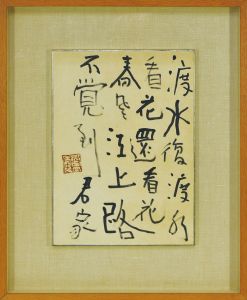 渡水復渡水
看花還看花
春風江上路
不覚到
君家